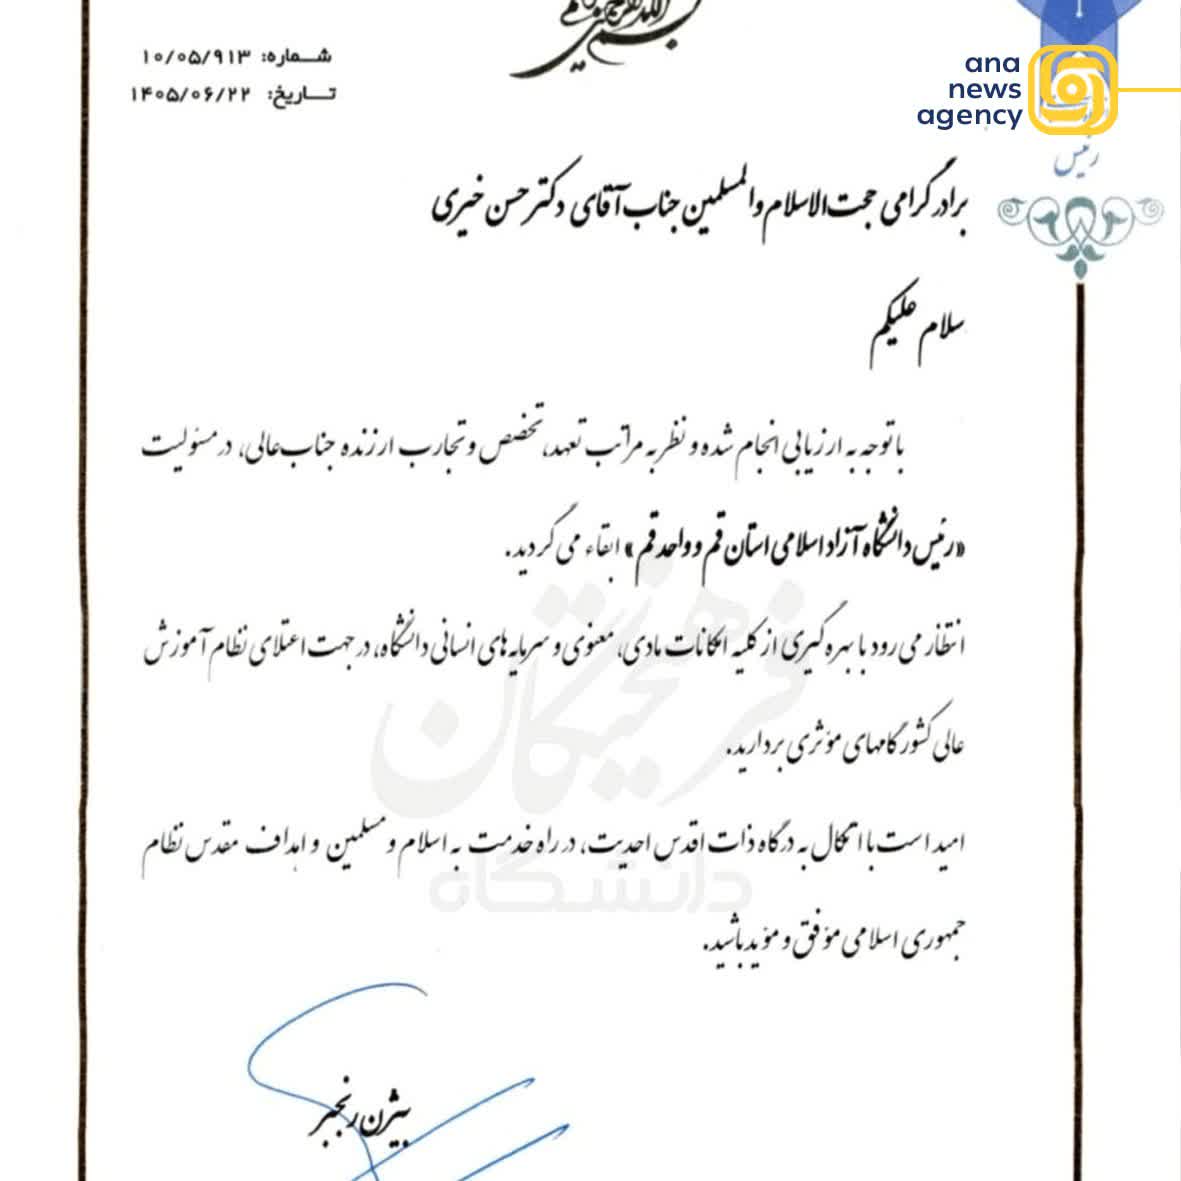 بسم الله الرحمن الرحیم
شماره: ۱۰/۰۵/۹۱۳
تاریخ: ۱۴۰۵/۰۶/۲۲
ana
news
agency
رئیس
برادر گرامی حجت‌الاسلام والمسلمین جناب آقای دکتر حسن خیری
سلام علیکم
با توجه به ارزیابی انجام شده و نظر به مراتب تعهد، تخصص و تجارب ارزنده جناب‌عالی، در مسئولیت
«رئیس دانشگاه آزاد اسلامی استان قم و واحد قم» ابقاء می گردید.
انتظار می رود با بهره گیری از کلیه امکانات مادی، معنوی و سرمایه های انسانی دانشگاه، در جهت اعتلای نظام آموزش
عالی کشور گامهای مؤثری بردارید.
امید است با اتکال به درگاه ذات اقدس احدیت، در راه خدمت به اسلام و مسلمین و اهداف مقدس نظام
جمهوری اسلامی موفق و مؤید باشید.
فرهیختگان
دانشگاه
بیژن رنجبر